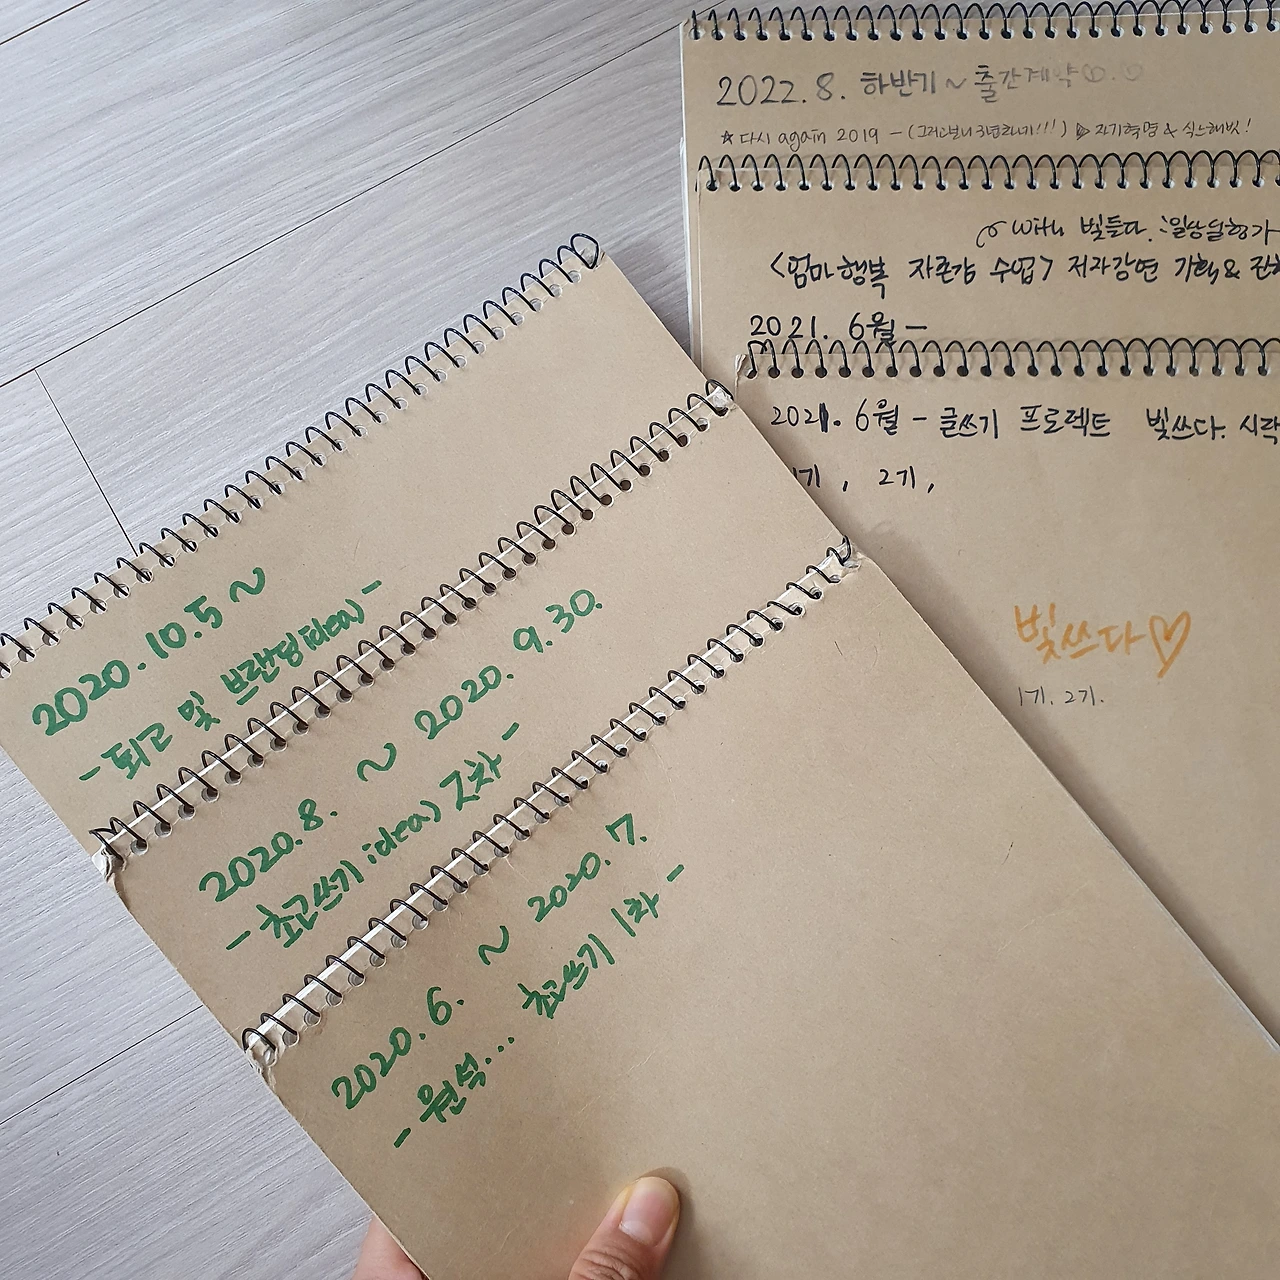 2020.10.5 ~
- 퇴고 및 브랜딩 idea) -
2020.8. ~ 2020. 9.30.
- 초고쓰기 idea) 2차 -
2020.6. ~ 2020.7.
- 원석... 초고쓰기 1차 -
2022.8. 하반기 ~ 출간계약♡.♡
☆ 다시 again 2019 - (그러고보니 3년만이네!!!) ▷ 자기혁명 &
with 빛들다. :일상실험가
<엄마 행복 자존감 수업> 저자강연 기획 &
2021. 6월 -
2021. 6월 - 글쓰기 프로젝트 빛쓰다. 시작
1기, 2기,
빛쓰다♡
1기. 2기.